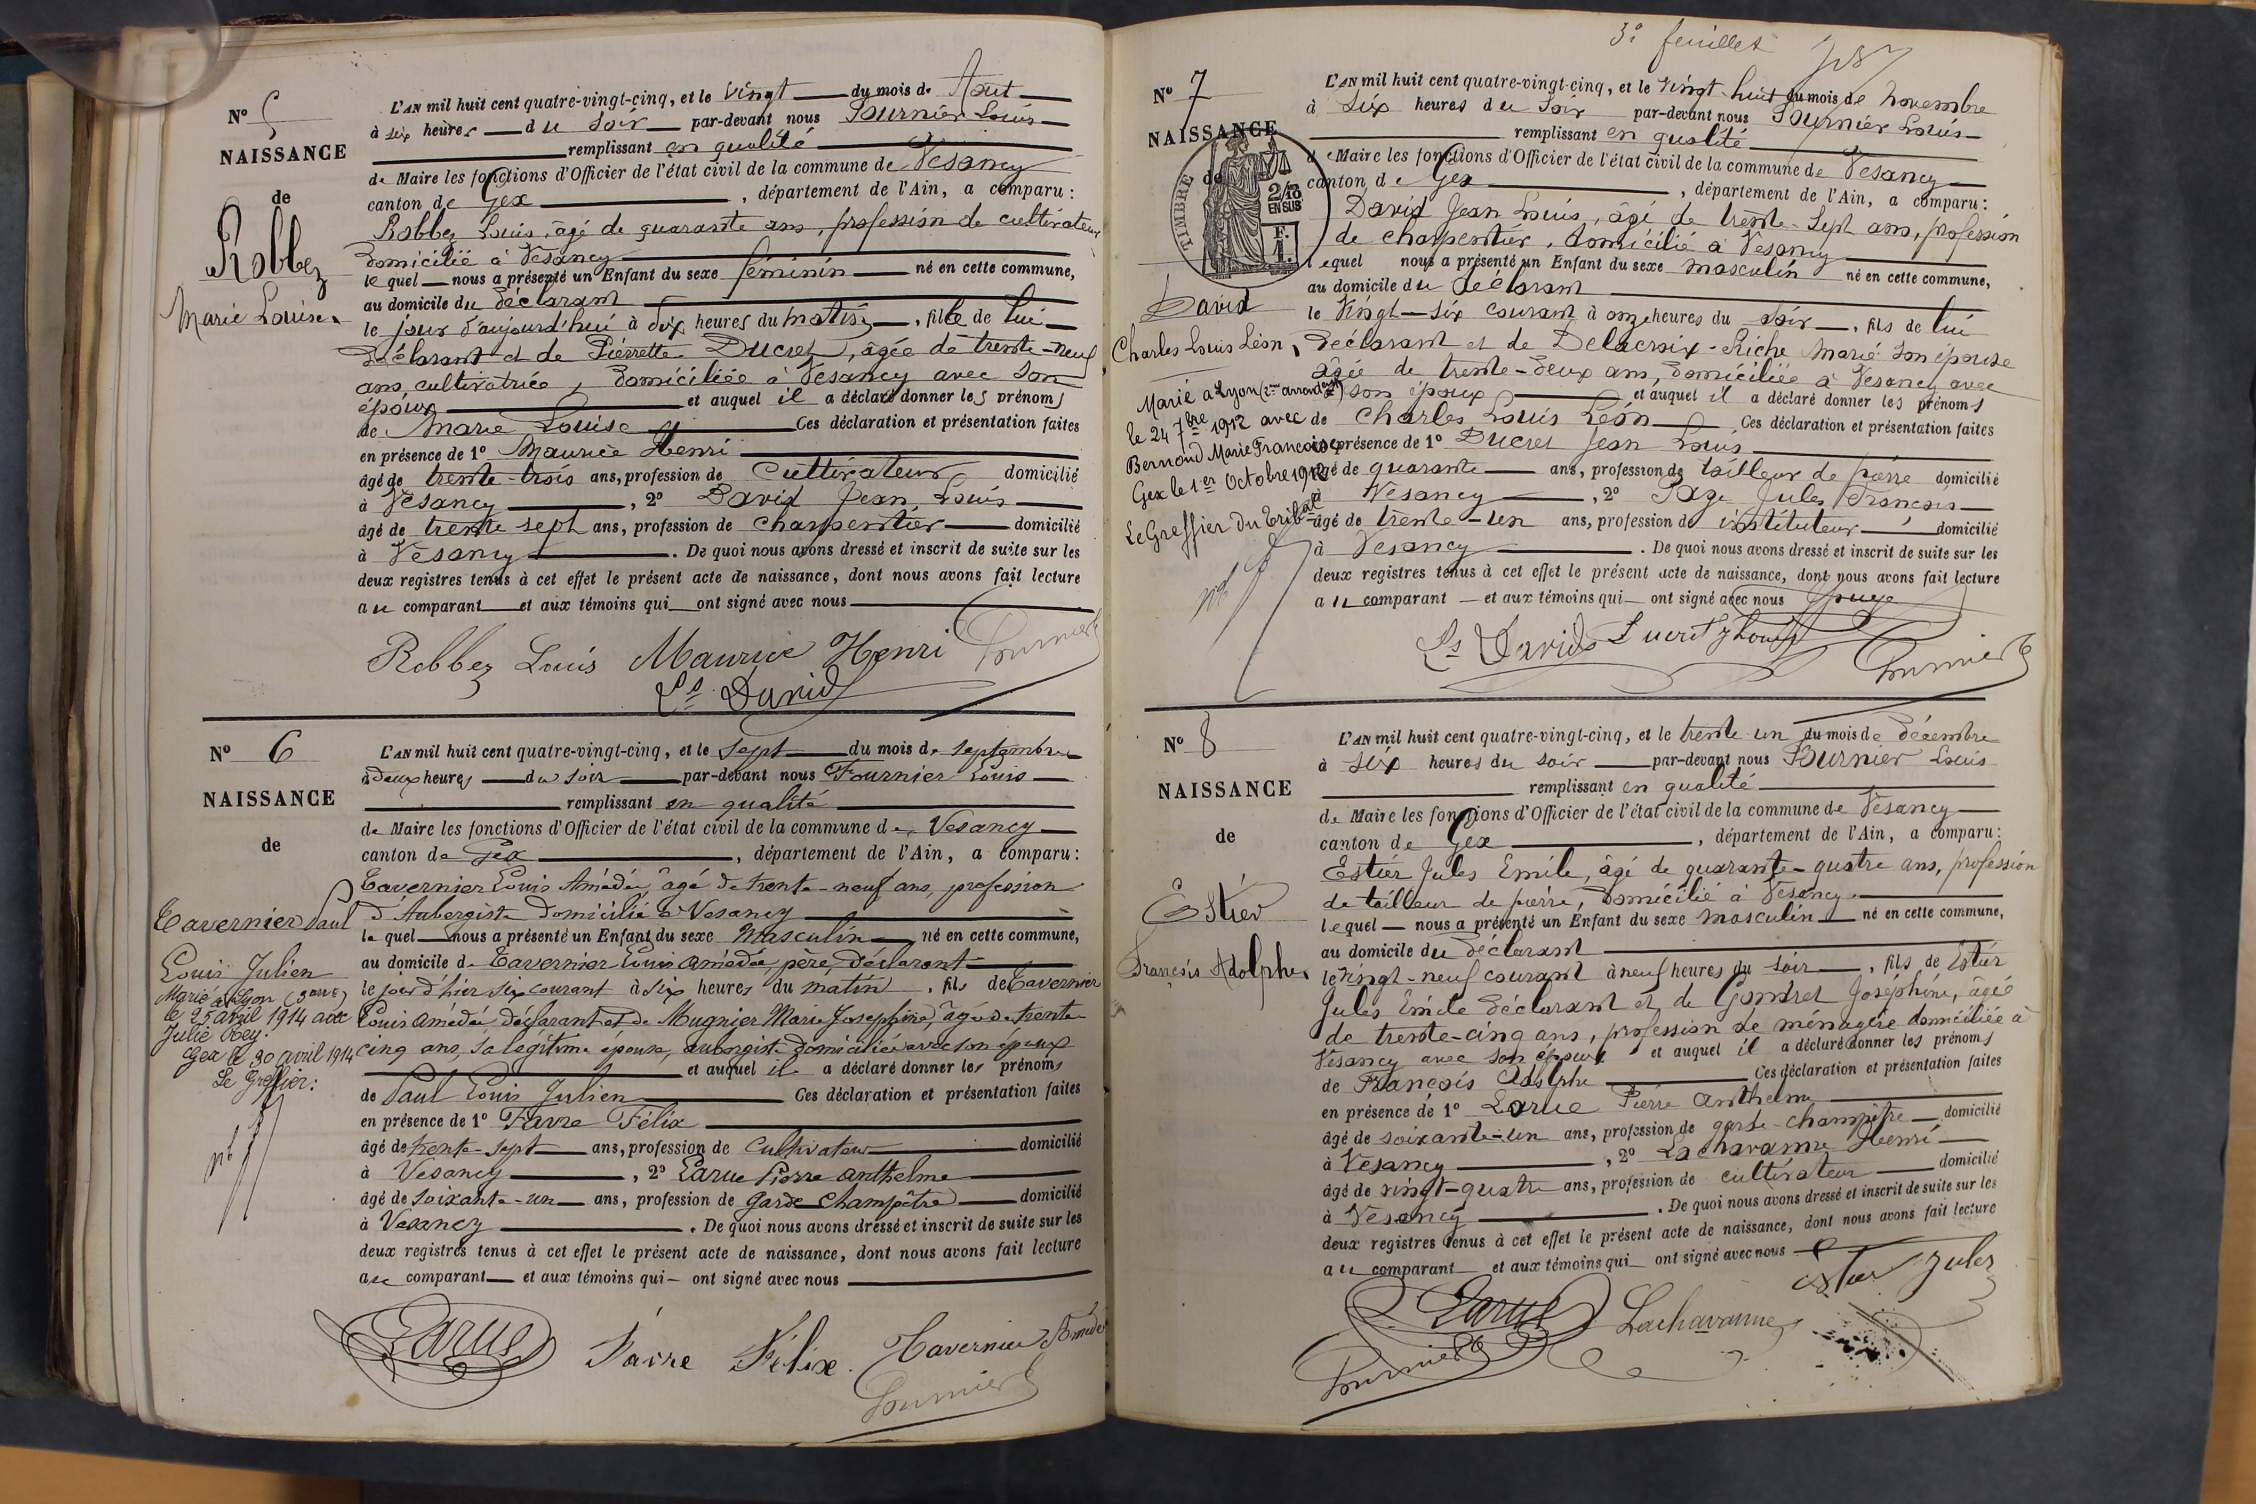 N° 5
NAISSANCE
de
Robbez
Marie Louise
L'AN mil huit cent quatre-vingt-cinq, et le vingt du mois de Aout
à six heures du soir par-devant nous Fournier Louis
remplissant en qualité
de Maire les fonctions d'Officier de l'état civil de la commune de Vesancy
canton de Gex, département de l'Ain, a comparu :
Robbez Louis, âgé de quarante ans, profession de cultivateur
domicilié à Vesancy
lequel nous a présenté un Enfant du sexe féminin né en cette commune,
au domicile du déclarant
le jour d'aujourd'hui à dix heures du matin, fille de lui
déclarant et de Pierrette Ducret, âgée de trente-neuf
ans, cultivatrice, domiciliée à Vesancy avec son
époux et auquel il a déclaré donner les prénoms
de Marie Louise Ces déclaration et présentation faites
en présence de 1° Maurice Henri
âgé de trente-trois ans, profession de cultivateur domicilié
à Vesancy, 2° David Jean Louis
âgé de trente sept ans, profession de charpentier domicilié
à Vesancy. De quoi nous avons dressé et inscrit de suite sur les
deux registres tenus à cet effet le présent acte de naissance, dont nous avons fait lecture
au comparant et aux témoins qui ont signé avec nous
Robbez Louis Maurice Henri Fournier
Ls David
N° 6
NAISSANCE
de
Tavernier Paul
Louis Julien
Marié à Lyon
le 25 avril 1914 avec
Julie Rey.
Gex le 30 avril 1914
Le Greffier :
L'AN mil huit cent quatre-vingt-cinq, et le sept du mois de septembre
à deux heures du soir par-devant nous Fournier Louis
remplissant en qualité
de Maire les fonctions d'Officier de l'état civil de la commune de Vesancy
canton de Gex, département de l'Ain, a comparu :
Tavernier Louis Amédée, âgé de trente-neuf ans, profession
d'Aubergiste domicilié à Vesancy
lequel nous a présenté un Enfant du sexe Masculin né en cette commune,
au domicile de Tavernier Louis Amédée, père, déclarant
le jour d'hier six courant à six heures du matin, fils de Tavernier
Louis Amédée, déclarant et de Mugnier Marie Josephine, âgée de trente
cinq ans, sa légitime épouse, aubergiste domiciliée avec son époux
et auquel il a déclaré donner les prénoms
de Paul Louis Julien Ces déclaration et présentation faites
en présence de 1° Favre Félix
âgé de trente-sept ans, profession de Cultivateur domicilié
à Vesancy, 2° Larue Pierre anthelme
âgé de soixante-un ans, profession de Garde Champêtre domicilié
à Vesancy. De quoi nous avons dressé et inscrit de suite sur les
deux registres tenus à cet effet le présent acte de naissance, dont nous avons fait lecture
au comparant et aux témoins qui ont signé avec nous
Larue Favre Félix. Tavernier Amédée
Fournier
3e feuillet
N° 7
NAISSANCE
de
TIMBRE
2/10 EN SUS
F. 1.
David
Charles Louis Léon
Marié à Lyon (2me arrondissement)
le 24 7bre 1912 avec
Bernoud Marie Françoise
Gex le 1er Octobre 1912
Le Greffier du Tribal
L'AN mil huit cent quatre-vingt-cinq, et le vingt-huit du mois de novembre
à six heures du soir par-devant nous Fournier Louis
remplissant en qualité
de Maire les fonctions d'Officier de l'état civil de la commune de Vesancy
canton de Gex, département de l'Ain, a comparu :
David Jean Louis, âgé de trente-sept ans, profession
de charpentier, domicilié à Vesancy
lequel nous a présenté un Enfant du sexe masculin né en cette commune,
au domicile du déclarant
le Vingt-six courant à onze heures du soir, fils de lui
déclarant et de Delacroix-Riche Marie son épouse
âgée de trente-deux ans, domiciliée à Vesancy avec
son époux et auquel il a déclaré donner les prénoms
de Charles Louis Léon Ces déclaration et présentation faites
en présence de 1° Ducret Jean Louis
âgé de quarante ans, profession de tailleur de pierre domicilié
à Vesancy, 2° Page Jules François
âgé de trente-un ans, profession d'instituteur domicilié
à Vesancy. De quoi nous avons dressé et inscrit de suite sur les
deux registres tenus à cet effet le présent acte de naissance, dont nous avons fait lecture
au comparant et aux témoins qui ont signé avec nous
Ls David Fournier
N° 8
NAISSANCE
de
Estier
François Adolphe
L'AN mil huit cent quatre-vingt-cinq, et le trente un du mois de décembre
à six heures du soir par-devant nous Fournier Louis
remplissant en qualité
de Maire les fonctions d'Officier de l'état civil de la commune de Vesancy
canton de Gex, département de l'Ain, a comparu :
Estier Jules Emile, âgé de quarante-quatre ans, profession
de tailleur de pierre, domicilié à Vesancy
lequel nous a présenté un Enfant du sexe masculin né en cette commune,
au domicile du déclarant
le vingt-neuf courant à neuf heures du soir, fils de Estier
Jules Emile déclarant et de Gondret Joséphine, âgée
de trente-cinq ans, profession de ménagère domiciliée à
Vesancy avec son époux et auquel il a déclaré donner les prénoms
de François Adolphe Ces déclaration et présentation faites
en présence de 1° Larue Pierre Anthelme
âgé de soixante-un ans, profession de garde-champêtre domicilié
à Vesancy, 2° Lachavanne Henri
âgé de vingt-quatre ans, profession de cultivateur domicilié
à Vesancy. De quoi nous avons dressé et inscrit de suite sur les
deux registres tenus à cet effet le présent acte de naissance, dont nous avons fait lecture
au comparant et aux témoins qui ont signé avec nous
Estier Jules
Larue Lachavanne
Fournier